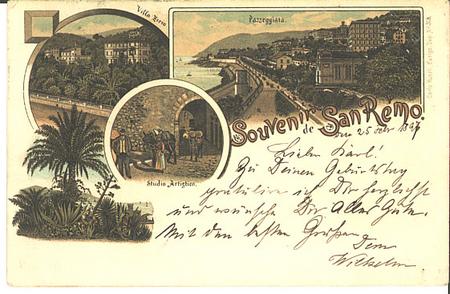 Villa Zirio
Passeggiata.
Studio Artistico.
Souvenir
de San Remo.
25 Febr 1897
Lieber Karl!
Zu Deinem Geburtstag
gratulire ich Dir herzlichst
und wünsche Dir Alles Gute.
Mit den besten Grüßen
Dein
Wilhelm